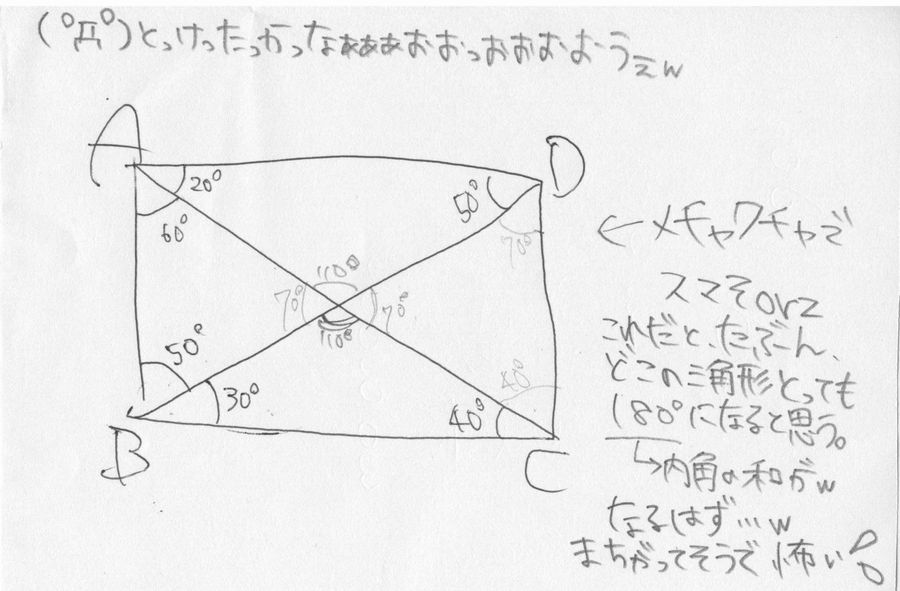 (°Д°)とっけったっかったなぁぁぁおおっおおおおうえw
A
D
20°
50°
60°
70°
←メチャワチャで
110°
スマそorz
70°
70°
これだと、たぶん、
110°
どこの三角形とっても
50°
40°
180°になると思う。
30°
40°
B
C
↳内角の和がw
なるはず…w
まちがってそうで怖い